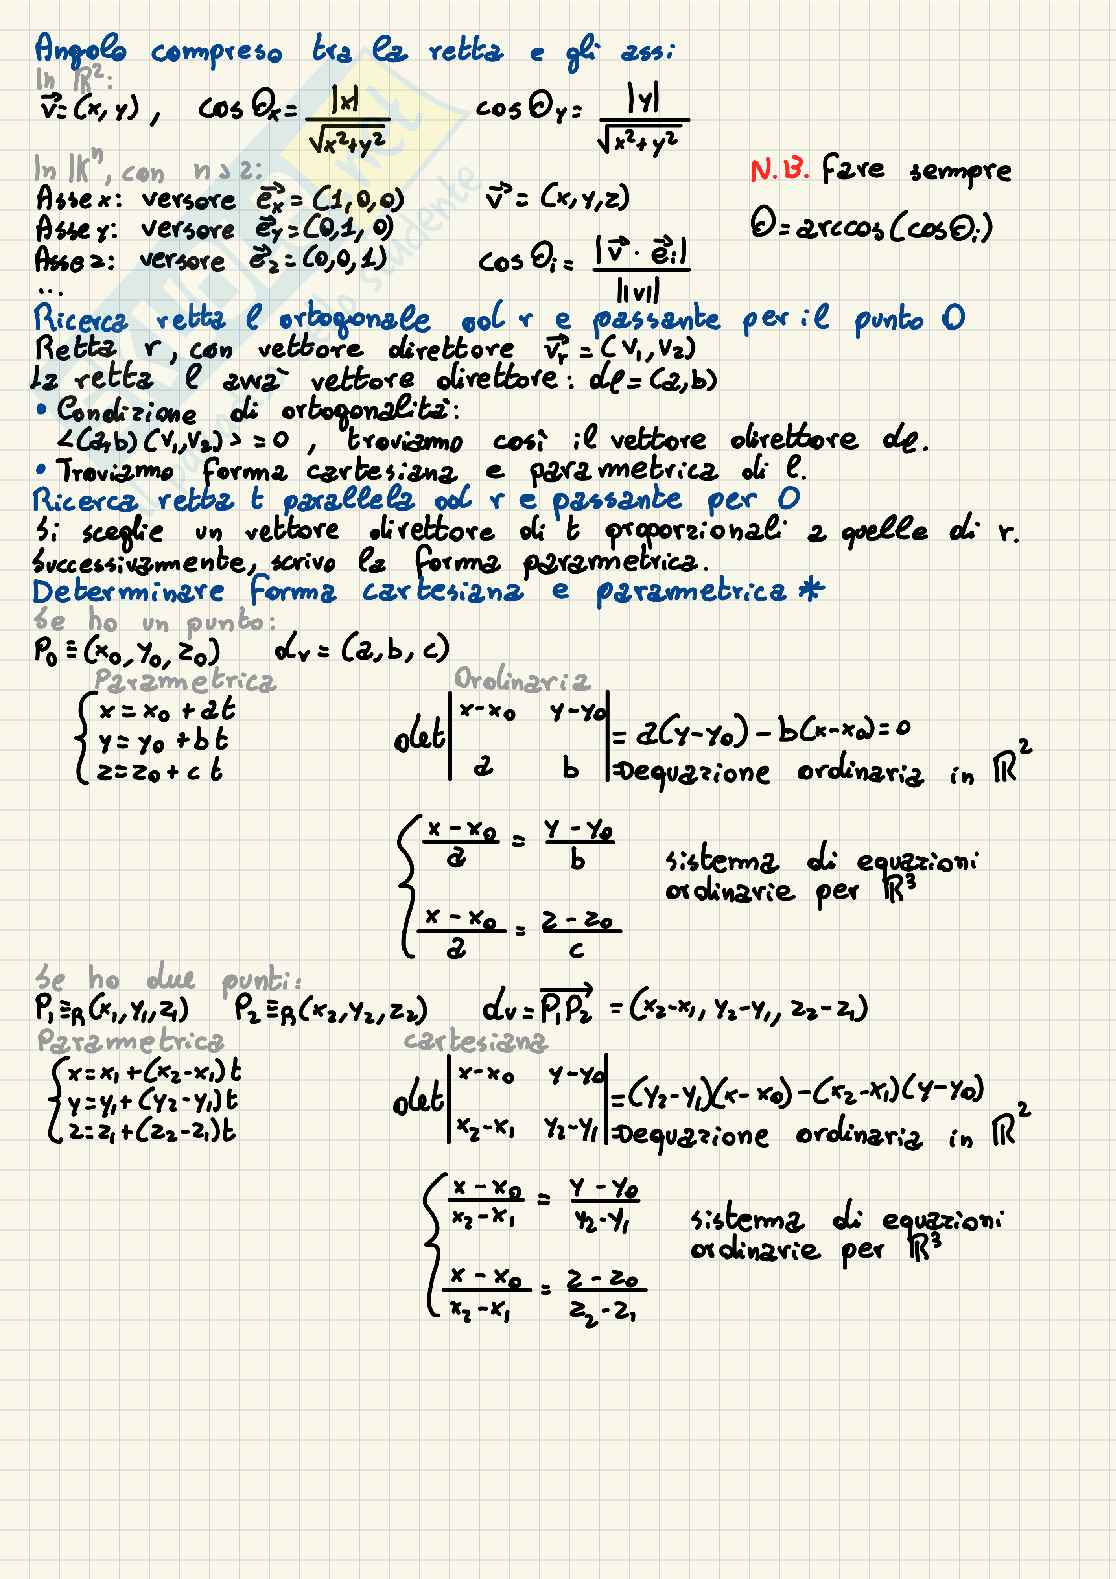 Angolo compreso tra la retta e gli assi:
In ℝ²:
v⃗=(x,y), cos Θx = |x| / √x²+y²   cos Θy = |y| / √x²+y²
In 𝕂ⁿ, con n>2:
N.B. Fare sempre
Asse x: versore e⃗x=(1,0,0)   v⃗=(x,y,z)
Asse y: versore e⃗y=(0,1,0)   Θ=arccos(cosΘi)
Asse z: versore e⃗z=(0,0,1)   cos Θi = |v⃗ · e⃗i| / ||v||
...
Ricerca retta l ortogonale ad r e passante per il punto O
Retta r, con vettore direttore v⃗r = (v₁,v₂)
La retta l avrà vettore direttore: dl=(a,b)
• Condizione di ortogonalità:
<(a,b)(v₁,v₂)>=0, troviamo così il vettore direttore dl.
• Troviamo forma cartesiana e parametrica di l.
Ricerca retta t parallela ad r e passante per O
Si sceglie un vettore direttore di t proporzionali a quelle di r.
Successivamente, scrivo la forma parametrica.
Determinare forma cartesiana e parametrica *
Se ho un punto:
P₀ ≡ (x₀,y₀,z₀)   dv = (a,b,c)
Parametrica   Ordinaria
{ x = x₀ + at   det | x-x₀   y-y₀ |
y = y₀ + bt   = a(y-y₀) - b(x-x₀)=0
z = z₀ + ct   | a   b | => equazione ordinaria in ℝ²
{ x - x₀ / a = y - y₀ / b   sistema di equazioni
ordinarie per ℝ³
x - x₀ / a = z - z₀ / c
Se ho due punti:
P₁ ≡R (x₁,y₁,z₁)   P₂ ≡R (x₂,y₂,z₂)   dv = P₁P₂⃗ = (x₂-x₁, y₂-y₁, z₂-z₁)
Parametrica   cartesiana
{ x = x₁+(x₂-x₁)t   det | x-x₀   y-y₀ |
y = y₁+(y₂-y₁)t   = (y₂-y₁)(x-x₀)-(x₂-x₁)(y-y₀)
z = z₁+(z₂-z₁)t   | x₂-x₁   y₂-y₁ | => equazione ordinaria in ℝ²
{ x - x₀ / x₂-x₁ = y - y₀ / y₂-y₁   sistema di equazioni
ordinarie per ℝ³
x - x₀ / x₂-x₁ = z - z₀ / z₂-z₁